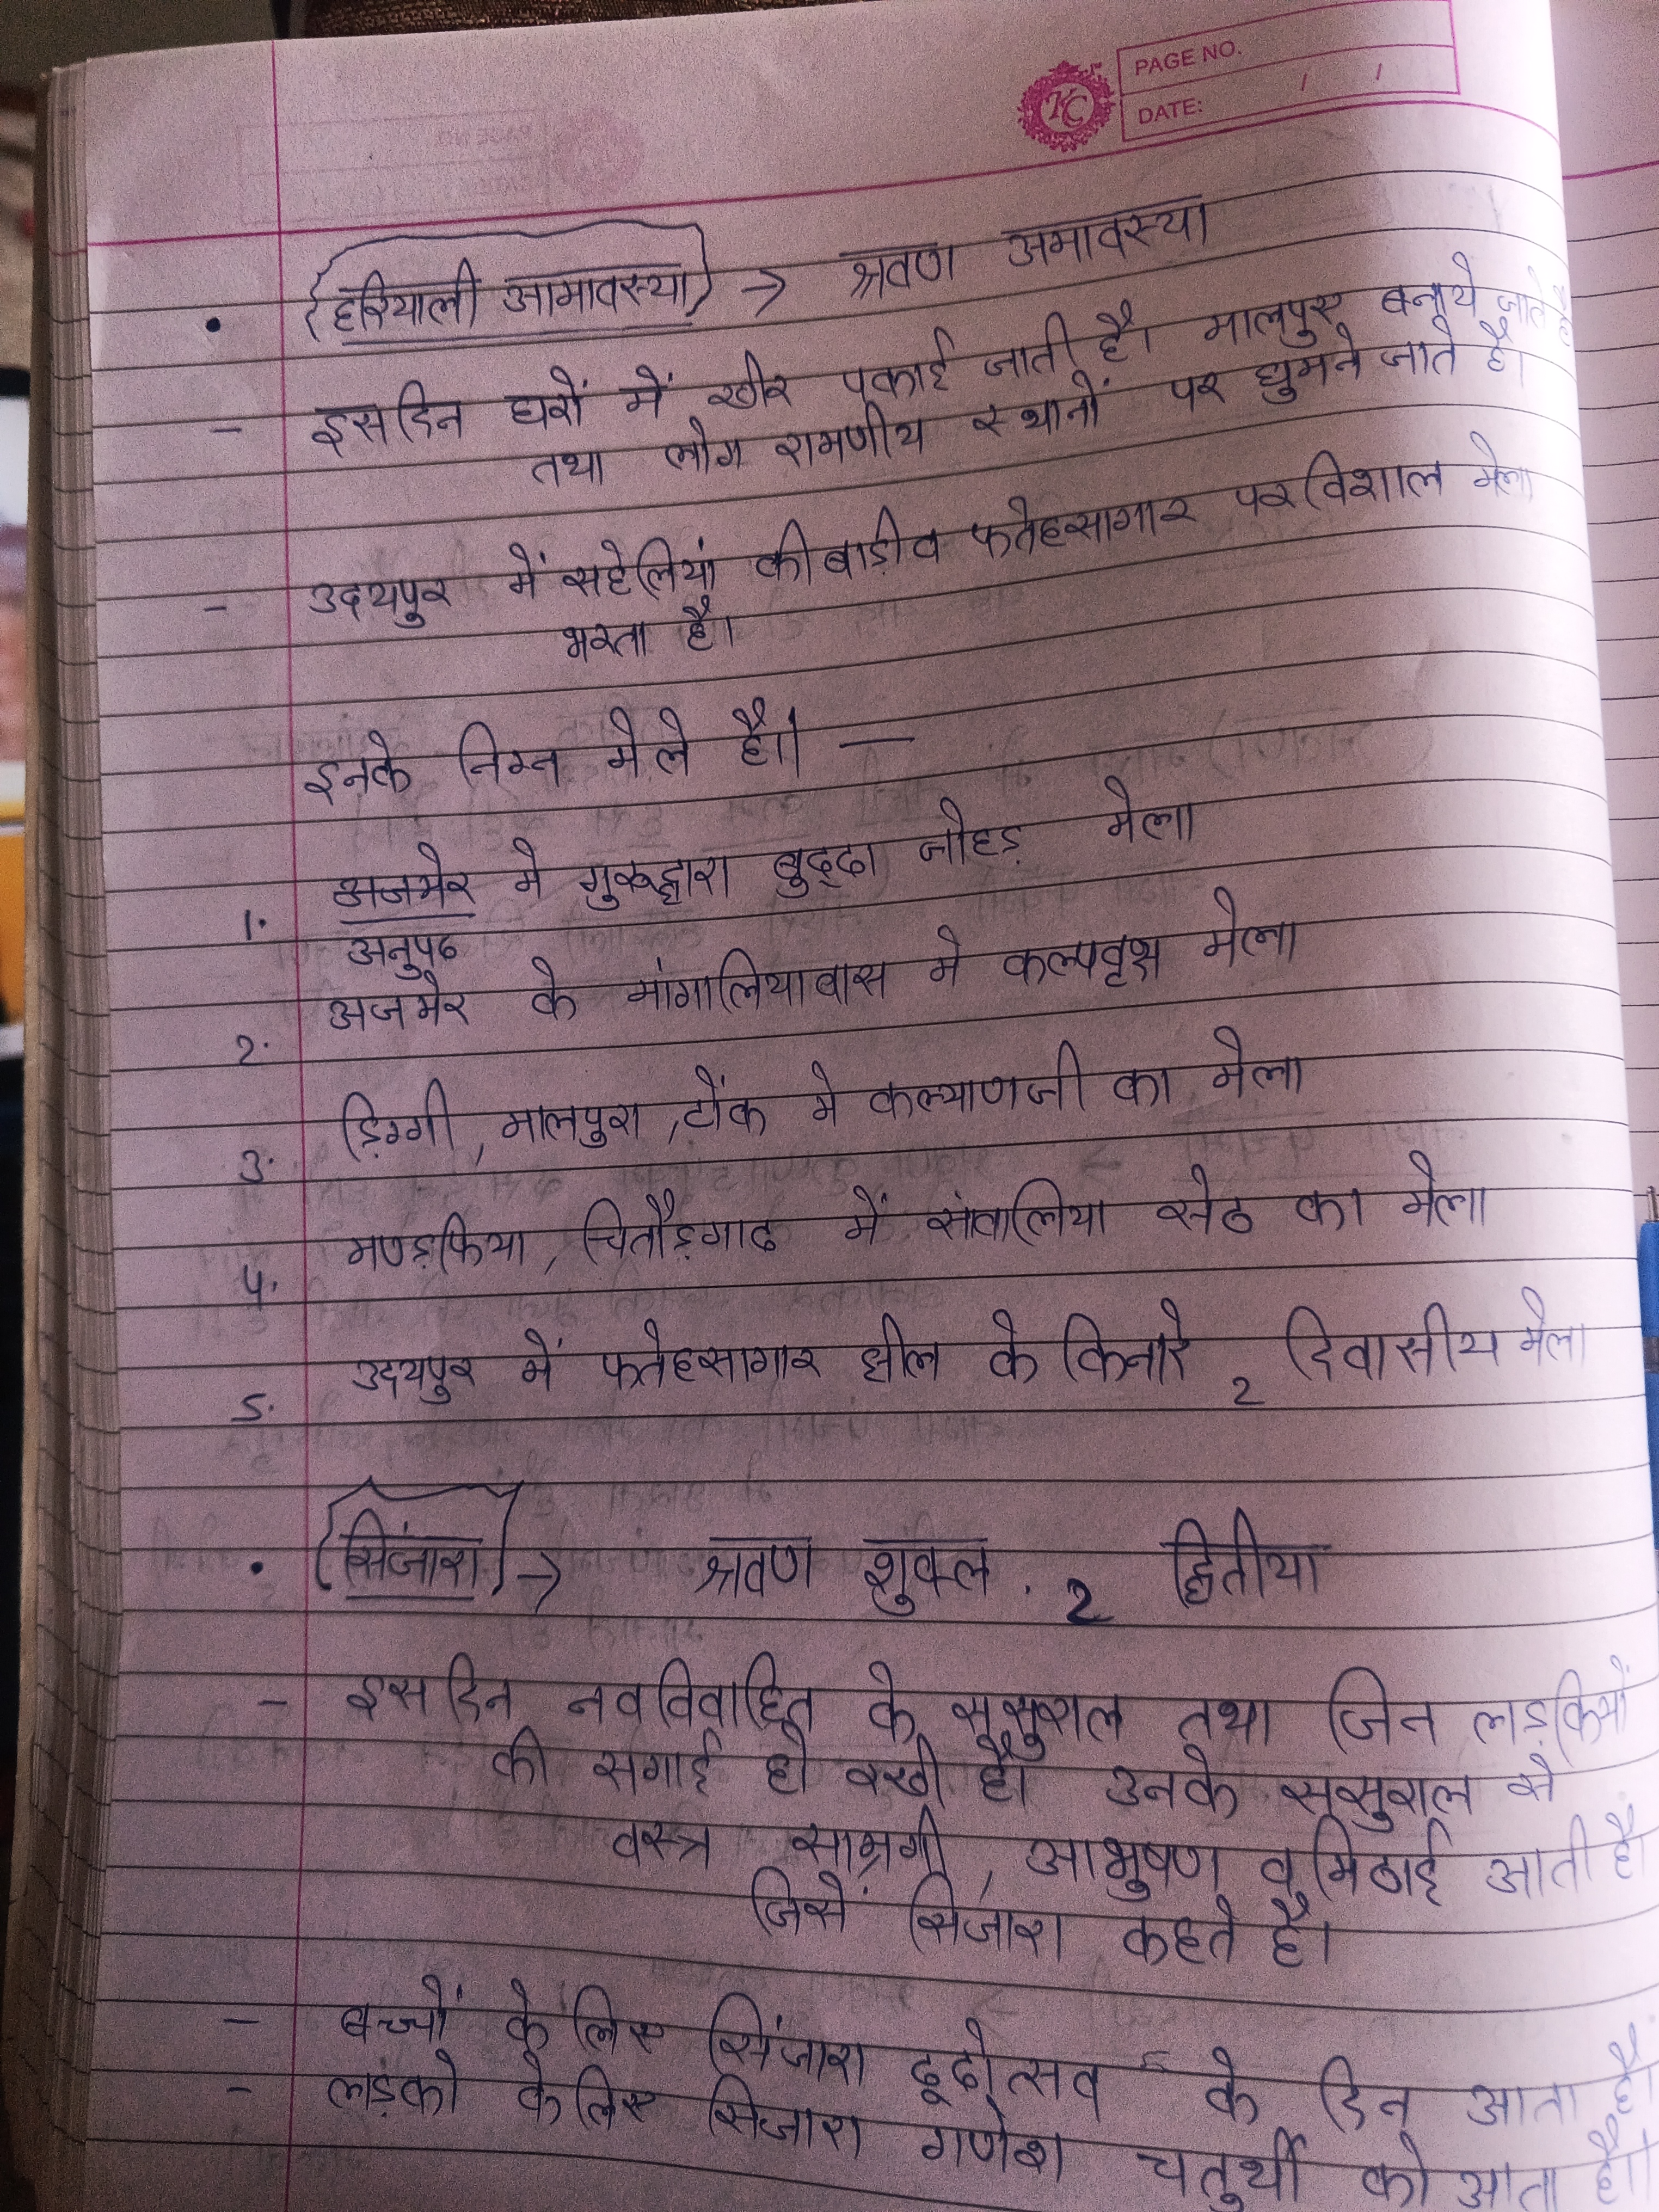 PAGE NO.
DATE: / /
• हरियाली आमावस्या → श्रवण अमावस्या
- इस दिन घरों में खीर पकाई जाती है। मालपुए बनाये जाते है
तथा लोग रामणीय स्थानों पर घुमने जाते है।
- उदयपुर में सहेलियां की बाड़ी व फतेहसागार पर विशाल मेला
भरता है।
इनके निम्न मेले है। —
1. अजमेर मे गुरूद्वारा बुद्दा जोहड़ मेला
अनुपढ
2. अजमेर के मांगालियावास मे कल्पवृक्ष मेला
3. डिग्गी, मालपुरा, टोंक मे कल्याणजी का मेला
4. मण्डफिया, चितौड़गाढ में सांवालिया सेठ का मेला
5. उदयपुर में फतेहसागार झील के किनारे 2 दिवासीय मेला
• सिंजारा → श्रवण शुक्ल . 2 द्वितीया
- इस दिन नवविवाहित के ससुराल तथा जिन लड़कियों
की सगाई हो रखी है। उनके ससुराल से
वस्त्र सामग्री, आभुषण व मिठाई आती है
जिसें सिंजारा कहते है।
- बच्चों के लिए सिंजारा ढूढोत्सव के दिन आता है।
- लड़को के लिए सिंजारा गणेश चतुर्थी को आता है।